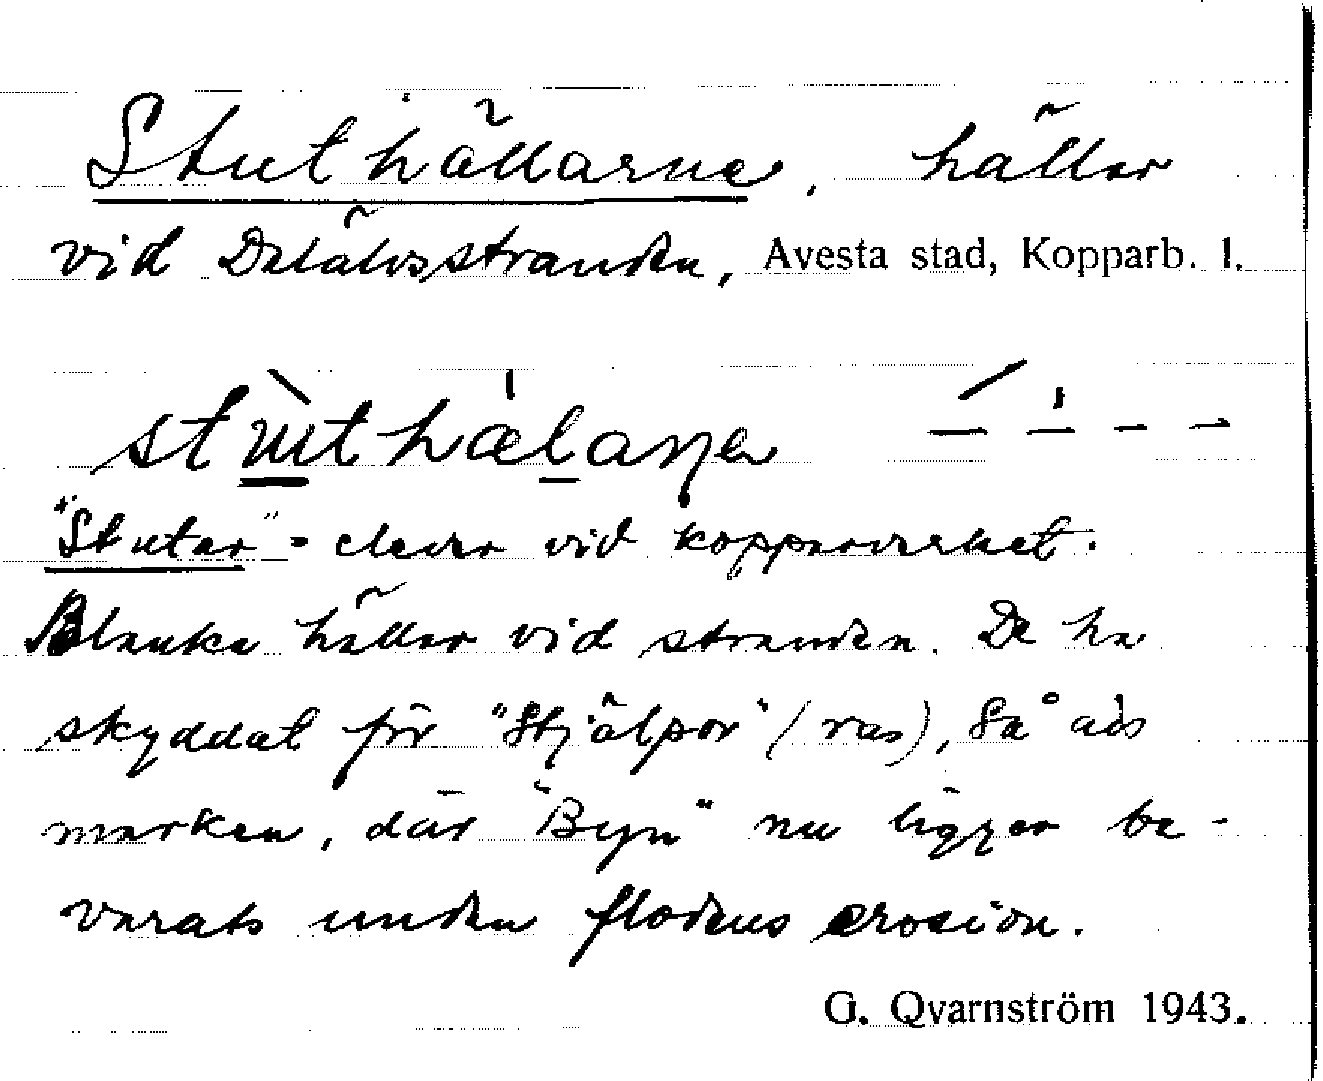 Stuthällarne, hällar
vid Dalälvsstranden, Avesta stad, Kopparb. l.
stùthælaɳa
"Stutar" = elever vid kopparverket.
Blanka hällar vid stranden. De ha
skyddat för "Stjälpor" (ras), så att
marken, där "Byn" nu ligger be-
varats undan flodens erosion.
G. Qvarnström 1943.